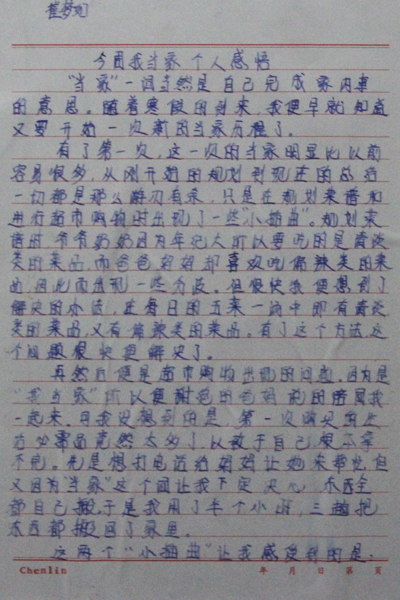 崔梦旭
今日我当家个人感悟
“当家”一词当然是自己完成家内事
的意思。随着寒假的到来,我便早就知道
又要开始一次新的当家历程了。
有了第一次,这一次的当家明显比以前
容易很多,从刚开始的规划到现在的总结
一切都是那么游刃有余,只是在规划菜谱和
进行超市购物时出现了一些“小插曲”。规划菜
谱时爷爷奶奶因为年纪大所以要吃的是清淡
类的菜品,而爸爸妈妈却喜欢吃偏辣类的菜
品,因此而出现一些分歧。但很快我便想到了
解决的办法,在每日的五菜一汤中即有清淡
类的菜品,又有偏辣类的菜品。有了这个方法,这
个问题很快便解决了。
再然后便是超市购物出现的问题,因为是
“我当家”所以便谢绝的妈妈的陪同我
一起来,可我没想到的是,第一次购买的生
活必需品竟然太多了,以致于自己根本拿
不完。先是想打电话给妈妈让她来帮忙,但
又因为“当家”这个词让我下定决心,东西全
都自己搬于是我用了半个小时,三趟把
东西都搬回了家里。
这两个“小插曲”让我感受到的是:
Chenlin 年 月 日 第 页